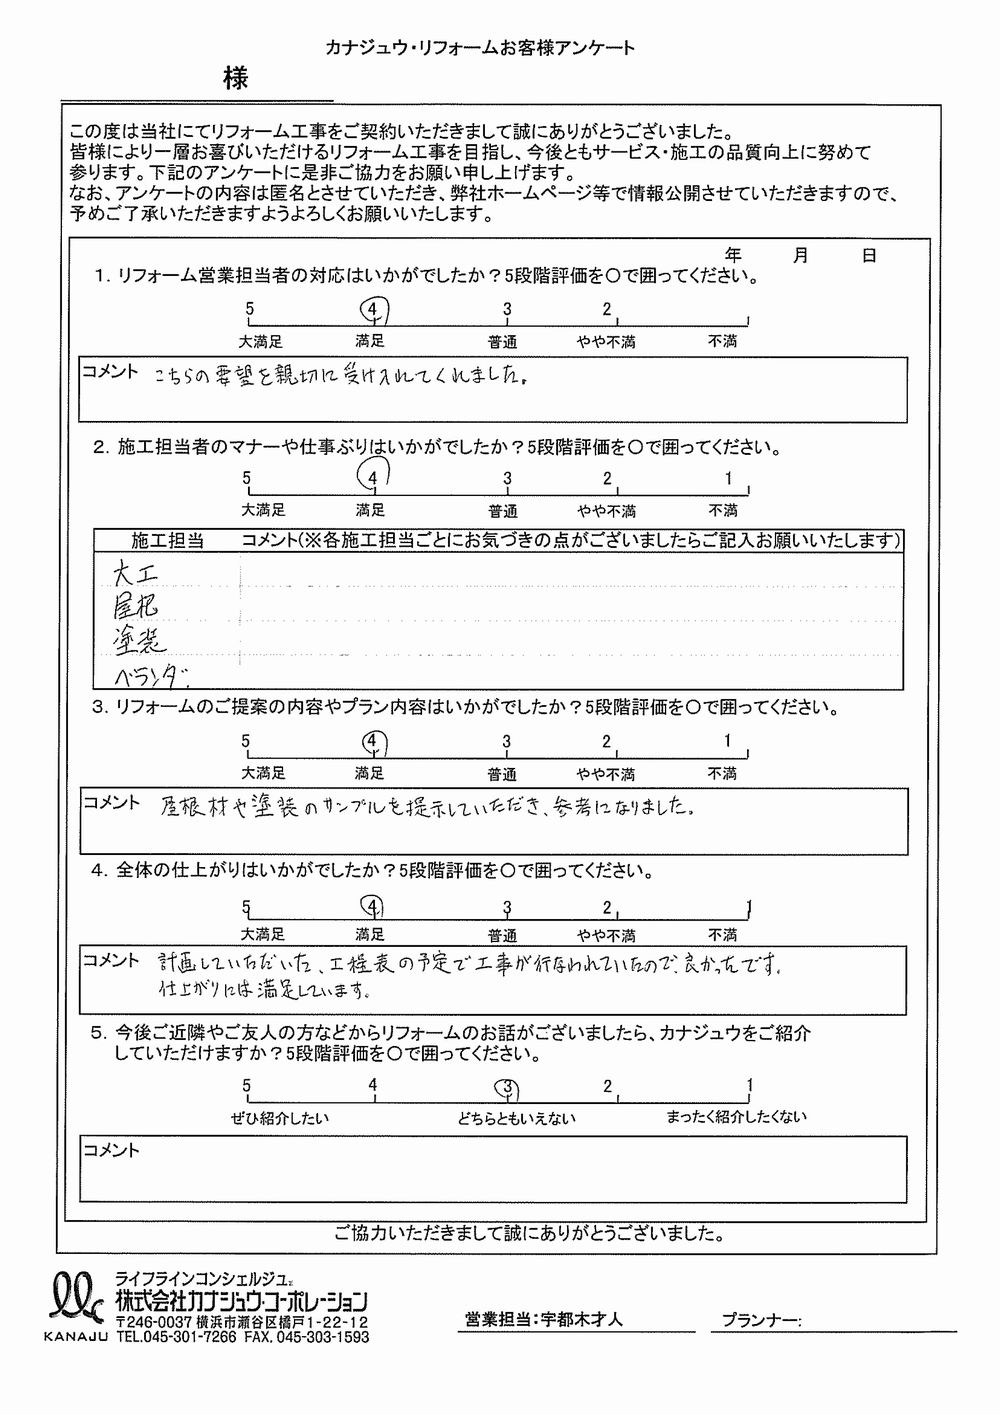 カナジュウ・リフォームお客様アンケート
様
この度は当社にてリフォーム工事をご契約いただきまして誠にありがとうございました。
皆様により一層お喜びいただけるリフォーム工事を目指し、今後ともサービス・施工の品質向上に努めて
参ります。下記のアンケートに是非ご協力をお願い申し上げます。
なお、アンケートの内容は匿名とさせていただき、弊社ホームページ等で情報公開させていただきますので、
予めご了承いただきますようよろしくお願いいたします。
年 月 日
1. リフォーム営業担当者の対応はいかがでしたか？5段階評価を○で囲ってください。
5 4 3 2
大満足 満足 普通 やや不満 不満
コメント こちらの要望を親切に受け入れてくれました。
2. 施工担当者のマナーや仕事ぶりはいかがでしたか？5段階評価を○で囲ってください。
5 4 3 2 1
大満足 満足 普通 やや不満 不満
施工担当 コメント(※各施工担当ごとにお気づきの点がございましたらご記入お願いいたします)
大工
屋根
塗装
ベランダ.
3. リフォームのご提案の内容やプラン内容はいかがでしたか？5段階評価を○で囲ってください。
5 4 3 2 1
大満足 満足 普通 やや不満 不満
コメント 屋根材や塗装のサンプルも提示していただき、参考になりました。
4. 全体の仕上がりはいかがでしたか？5段階評価を○で囲ってください。
5 4 3 2 1
大満足 満足 普通 やや不満 不満
コメント 計画していただいた、工程表の予定で工事が行なわれていたので、良かったです。
仕上がりには満足しています。
5. 今後ご近隣やご友人の方などからリフォームのお話がございましたら、カナジュウをご紹介
していただけますか？5段階評価を○で囲ってください。
5 4 3 2 1
ぜひ紹介したい どちらともいえない まったく紹介したくない
コメント
ご協力いただきまして誠にありがとうございました。
ライフラインコンシェルジュ
株式会社カナジュウ・コーポレーション
〒246-0037 横浜市瀬谷区橋戸1-22-12
KANAJU TEL.045-301-7266 FAX.045-303-1593
営業担当：宇都木才人 プランナー：